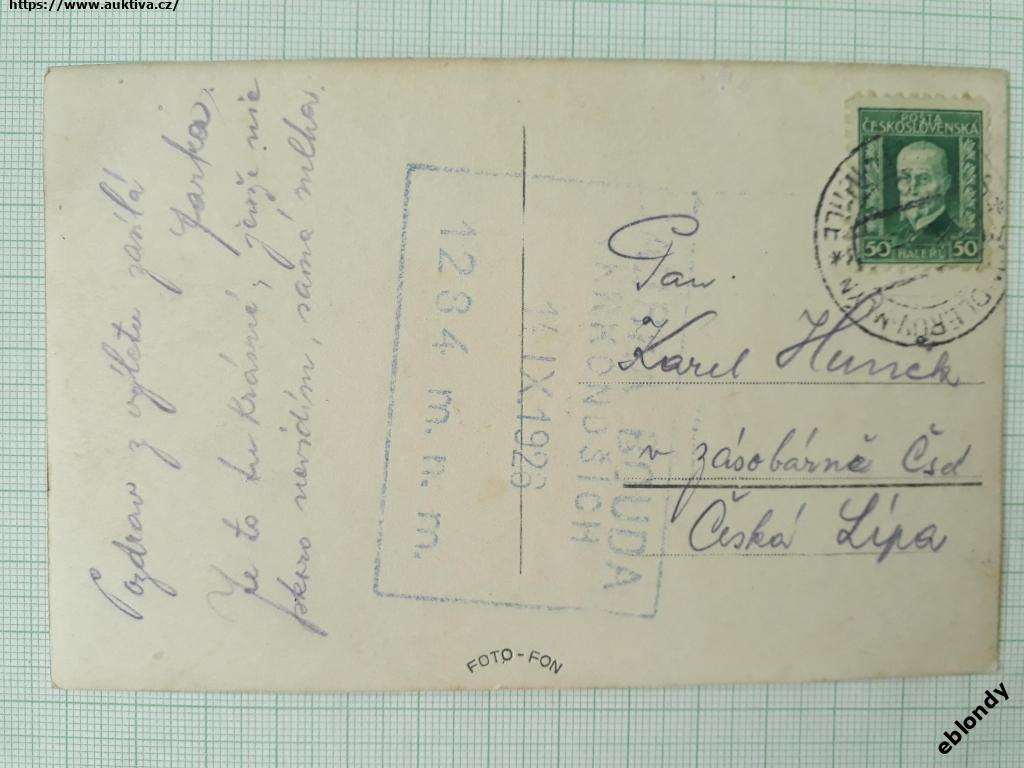 https://www.auktiva.cz/
Pozdrav z výletu zasílá
Jarka.
Je to tu krásné, jenže nic
skoro nevidím, samá mlha.
BOUDA
KRKONOŠÍCH
14 IX 1928
1284 m. n. m.
POSTA
ČESKOSLOVENSKÁ
50 HALERU 50
Pan.
Karel
v zásobárně Čsd
Česká Lípa
FOTO-FON
eblondy